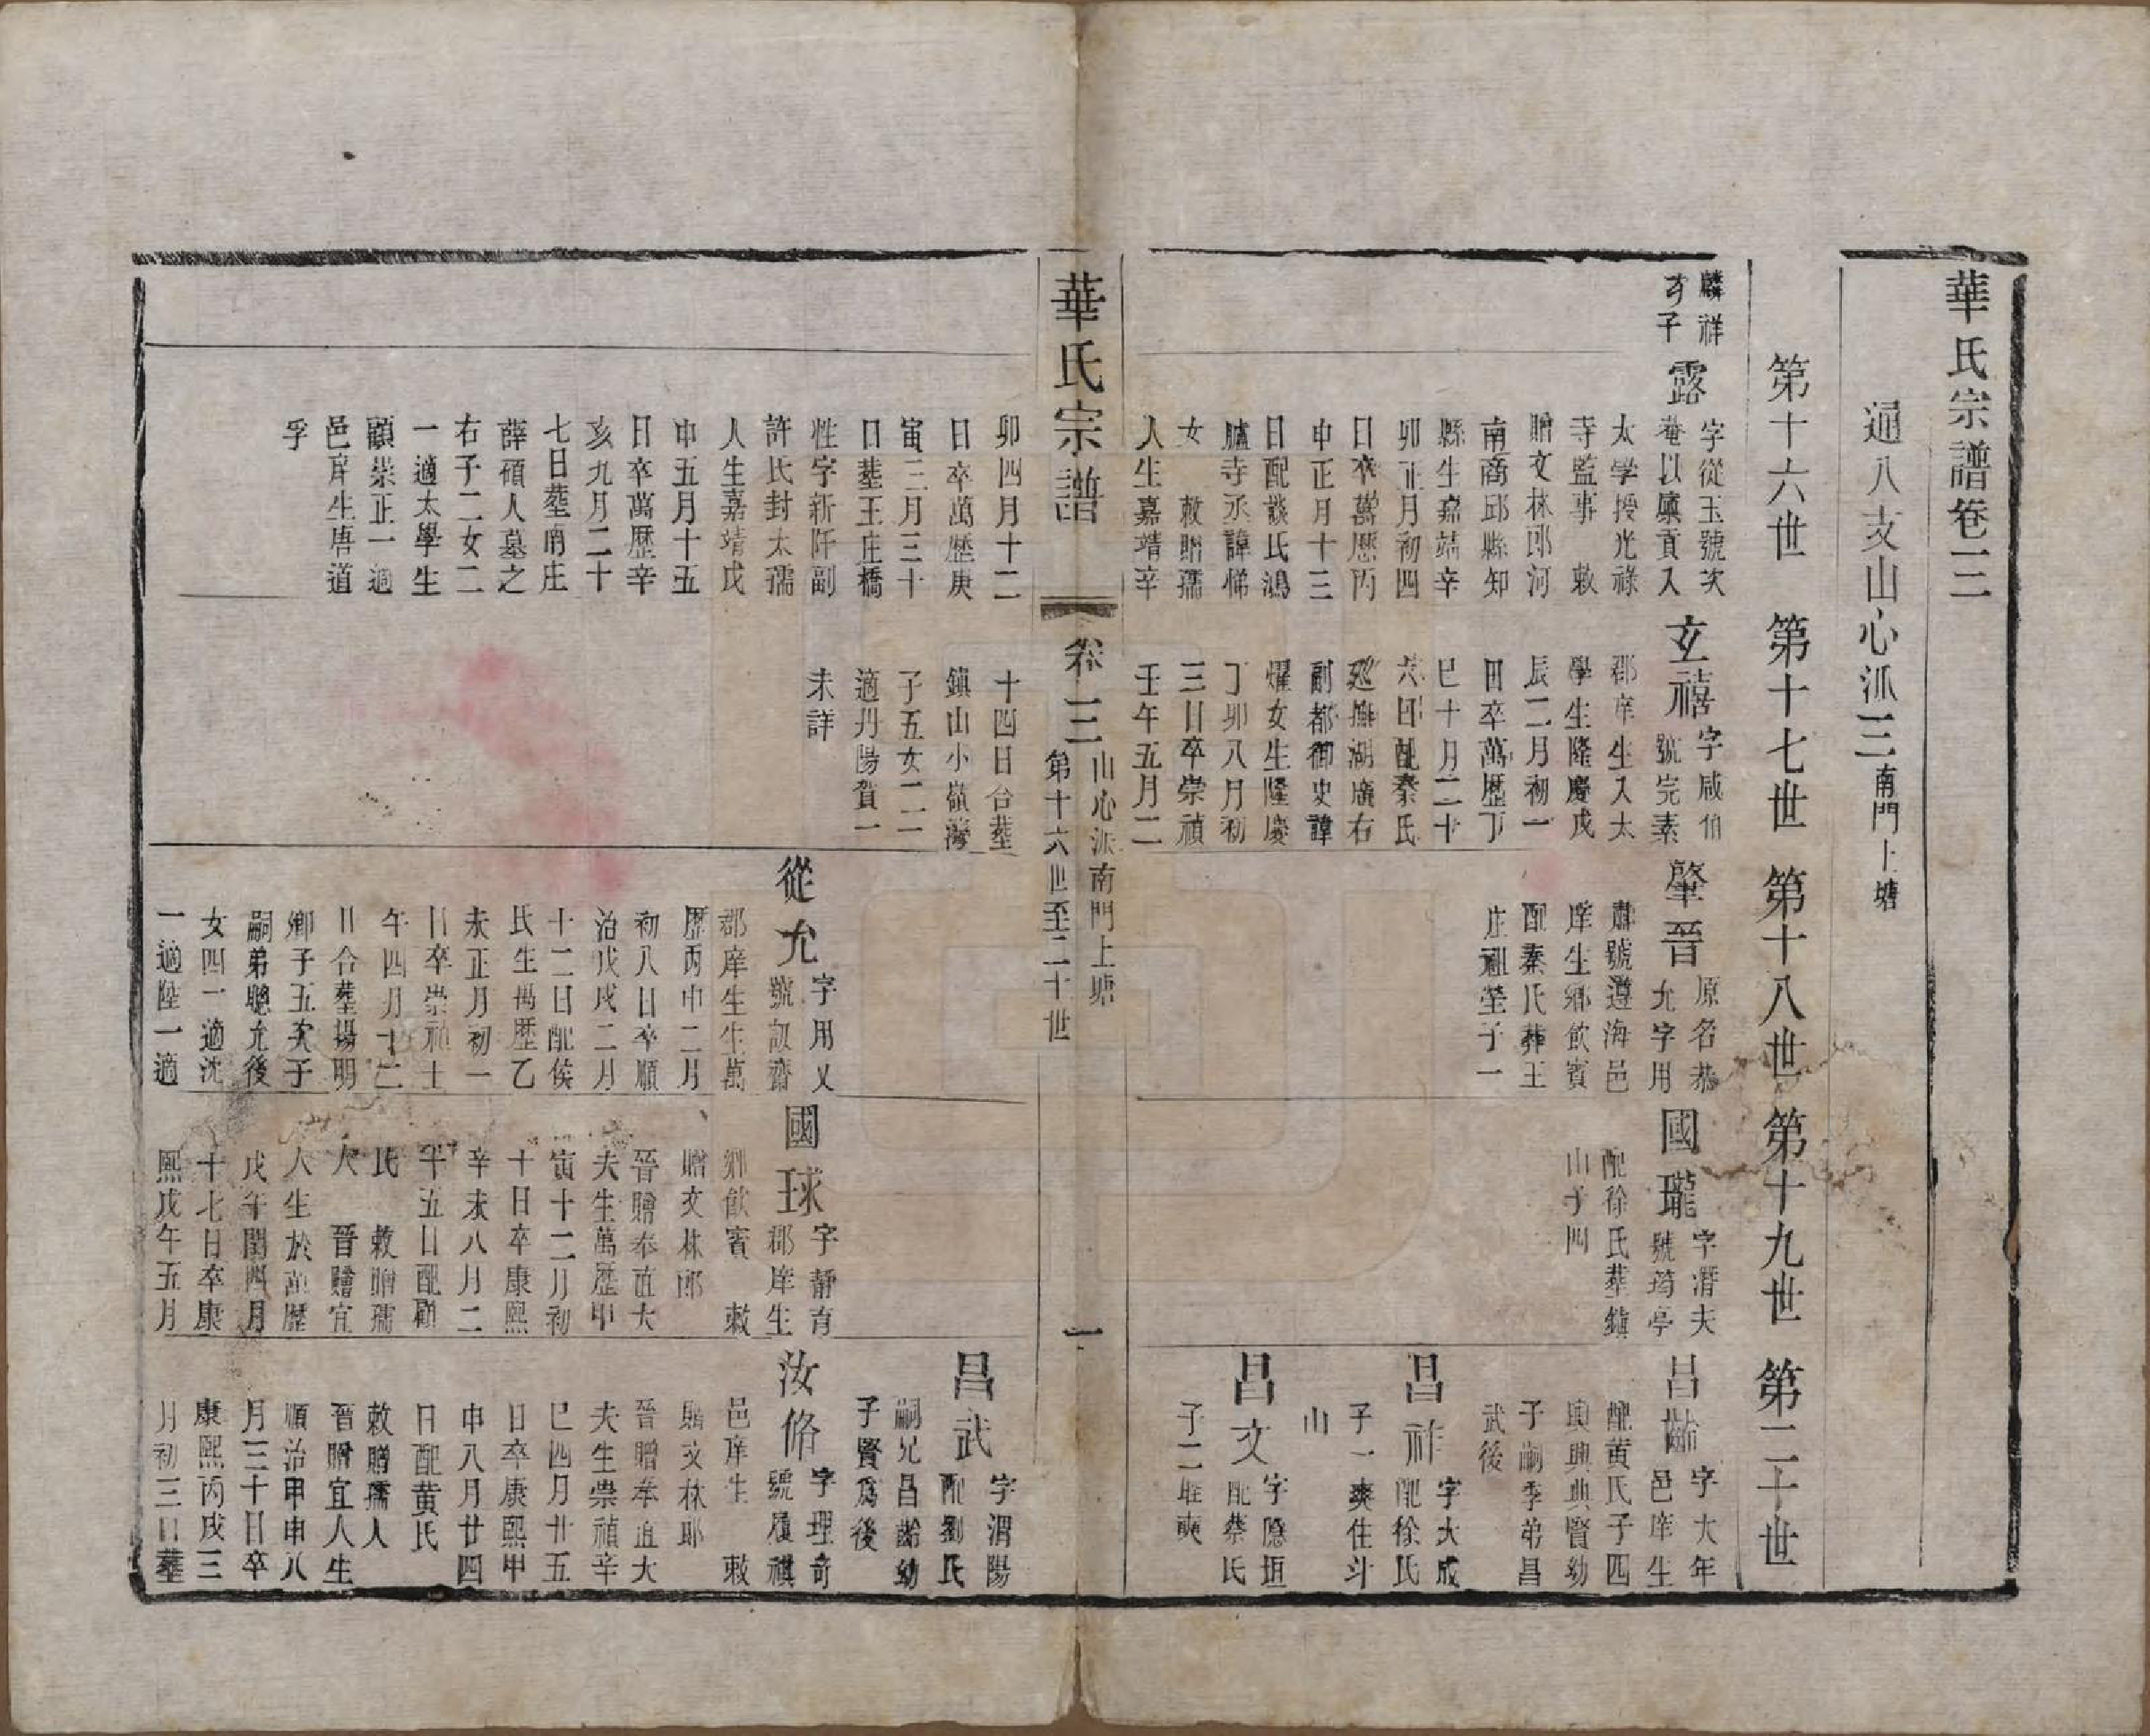 華氏宗譜卷三
通八支山心派三南門上塘
第十六世
第十七世
第十八世
第十九世
第二十世
麟祥
子
露
字從玉號次
菴以廩貢入
太學授光祿
寺監事 敕
贈文林郎河
南商邱縣知
縣生嘉靖辛
卯正月初四
日卒萬歷丙
申正月十三
日配談氏鴻
臚寺丞諱悌
女 敕贈孺
人生嘉靖辛
玄禧
字咸伯
號完素
郡庠生入太
學生隆慶戊
辰二月初一
日卒萬歷丁
巳十月二十
六日配秦氏
廵撫湖廣右
副都御史諱
燿女生隆慶
丁卯八月初
三日卒崇禎
壬午五月二
肇晉
原名恭
允字用
肅號遵海邑
庠生鄉飲賓
配秦氏葬王
庄祖塋子一
國瓏
字潛夫
號筠亭
配徐氏葬鎮
山子四
昌齡
字大年
邑庠生
配黄氏子四
興典賢幼
子嗣季弟昌
武後
昌祚
字大成
配徐氏
子一爽住斗
山
昌文
字應垣
配蔡氏
子二
華氏宗譜
卷三
山心派南門上塘
第十六世至二十世
一
卯四月十二
日卒萬歷庚
寅三月三十
日塟王庄橋
性字新阡副
許氏封太孺
人生嘉靖戊
申五月十五
日卒萬歷辛
亥九月二十
七日塟南庄
薛碩人墓之
右子二女二
一適太學生
顧崇正一適
邑庠生唐道
孚
十四日合塟
鎮山小嶺灣
子五女二一
適丹陽賀一
未詳
從允
字用乂
號訒齋
郡庠生生萬
歷丙申二月
初八日卒順
治戊戌二月
十二日配侯
氏生萬歷乙
未正月初一
日卒崇禎壬
午四月十二
日合塟揚明
鄉子五次子
嗣弟聰允後
女四一適沈
一適陸一適
國球
字靜育
郡庠生
鄉飲賓 敕
贈文林郎
晉贈奉直大
夫生萬歷甲
寅十二月初
十日卒康熙
辛未八月二
十五日配顧
氏 敕贈孺
人 晉贈宜
人生於萬歷
戊午閏四月
十七日卒康
熙戊午五月
昌武
字渭陽
配劉氏
嗣兄昌齡幼
子賢爲後
汝脩
字理奇
號履祺
邑庠生 敕
贈文林郎
晉贈奉直大
夫生崇禎辛
巳四月廿五
日卒康熙甲
申八月廿四
日配黄氏
敕贈孺人
晉贈宜人生
順治甲申八
月三十日卒
康熙丙戌三
月初三日塟